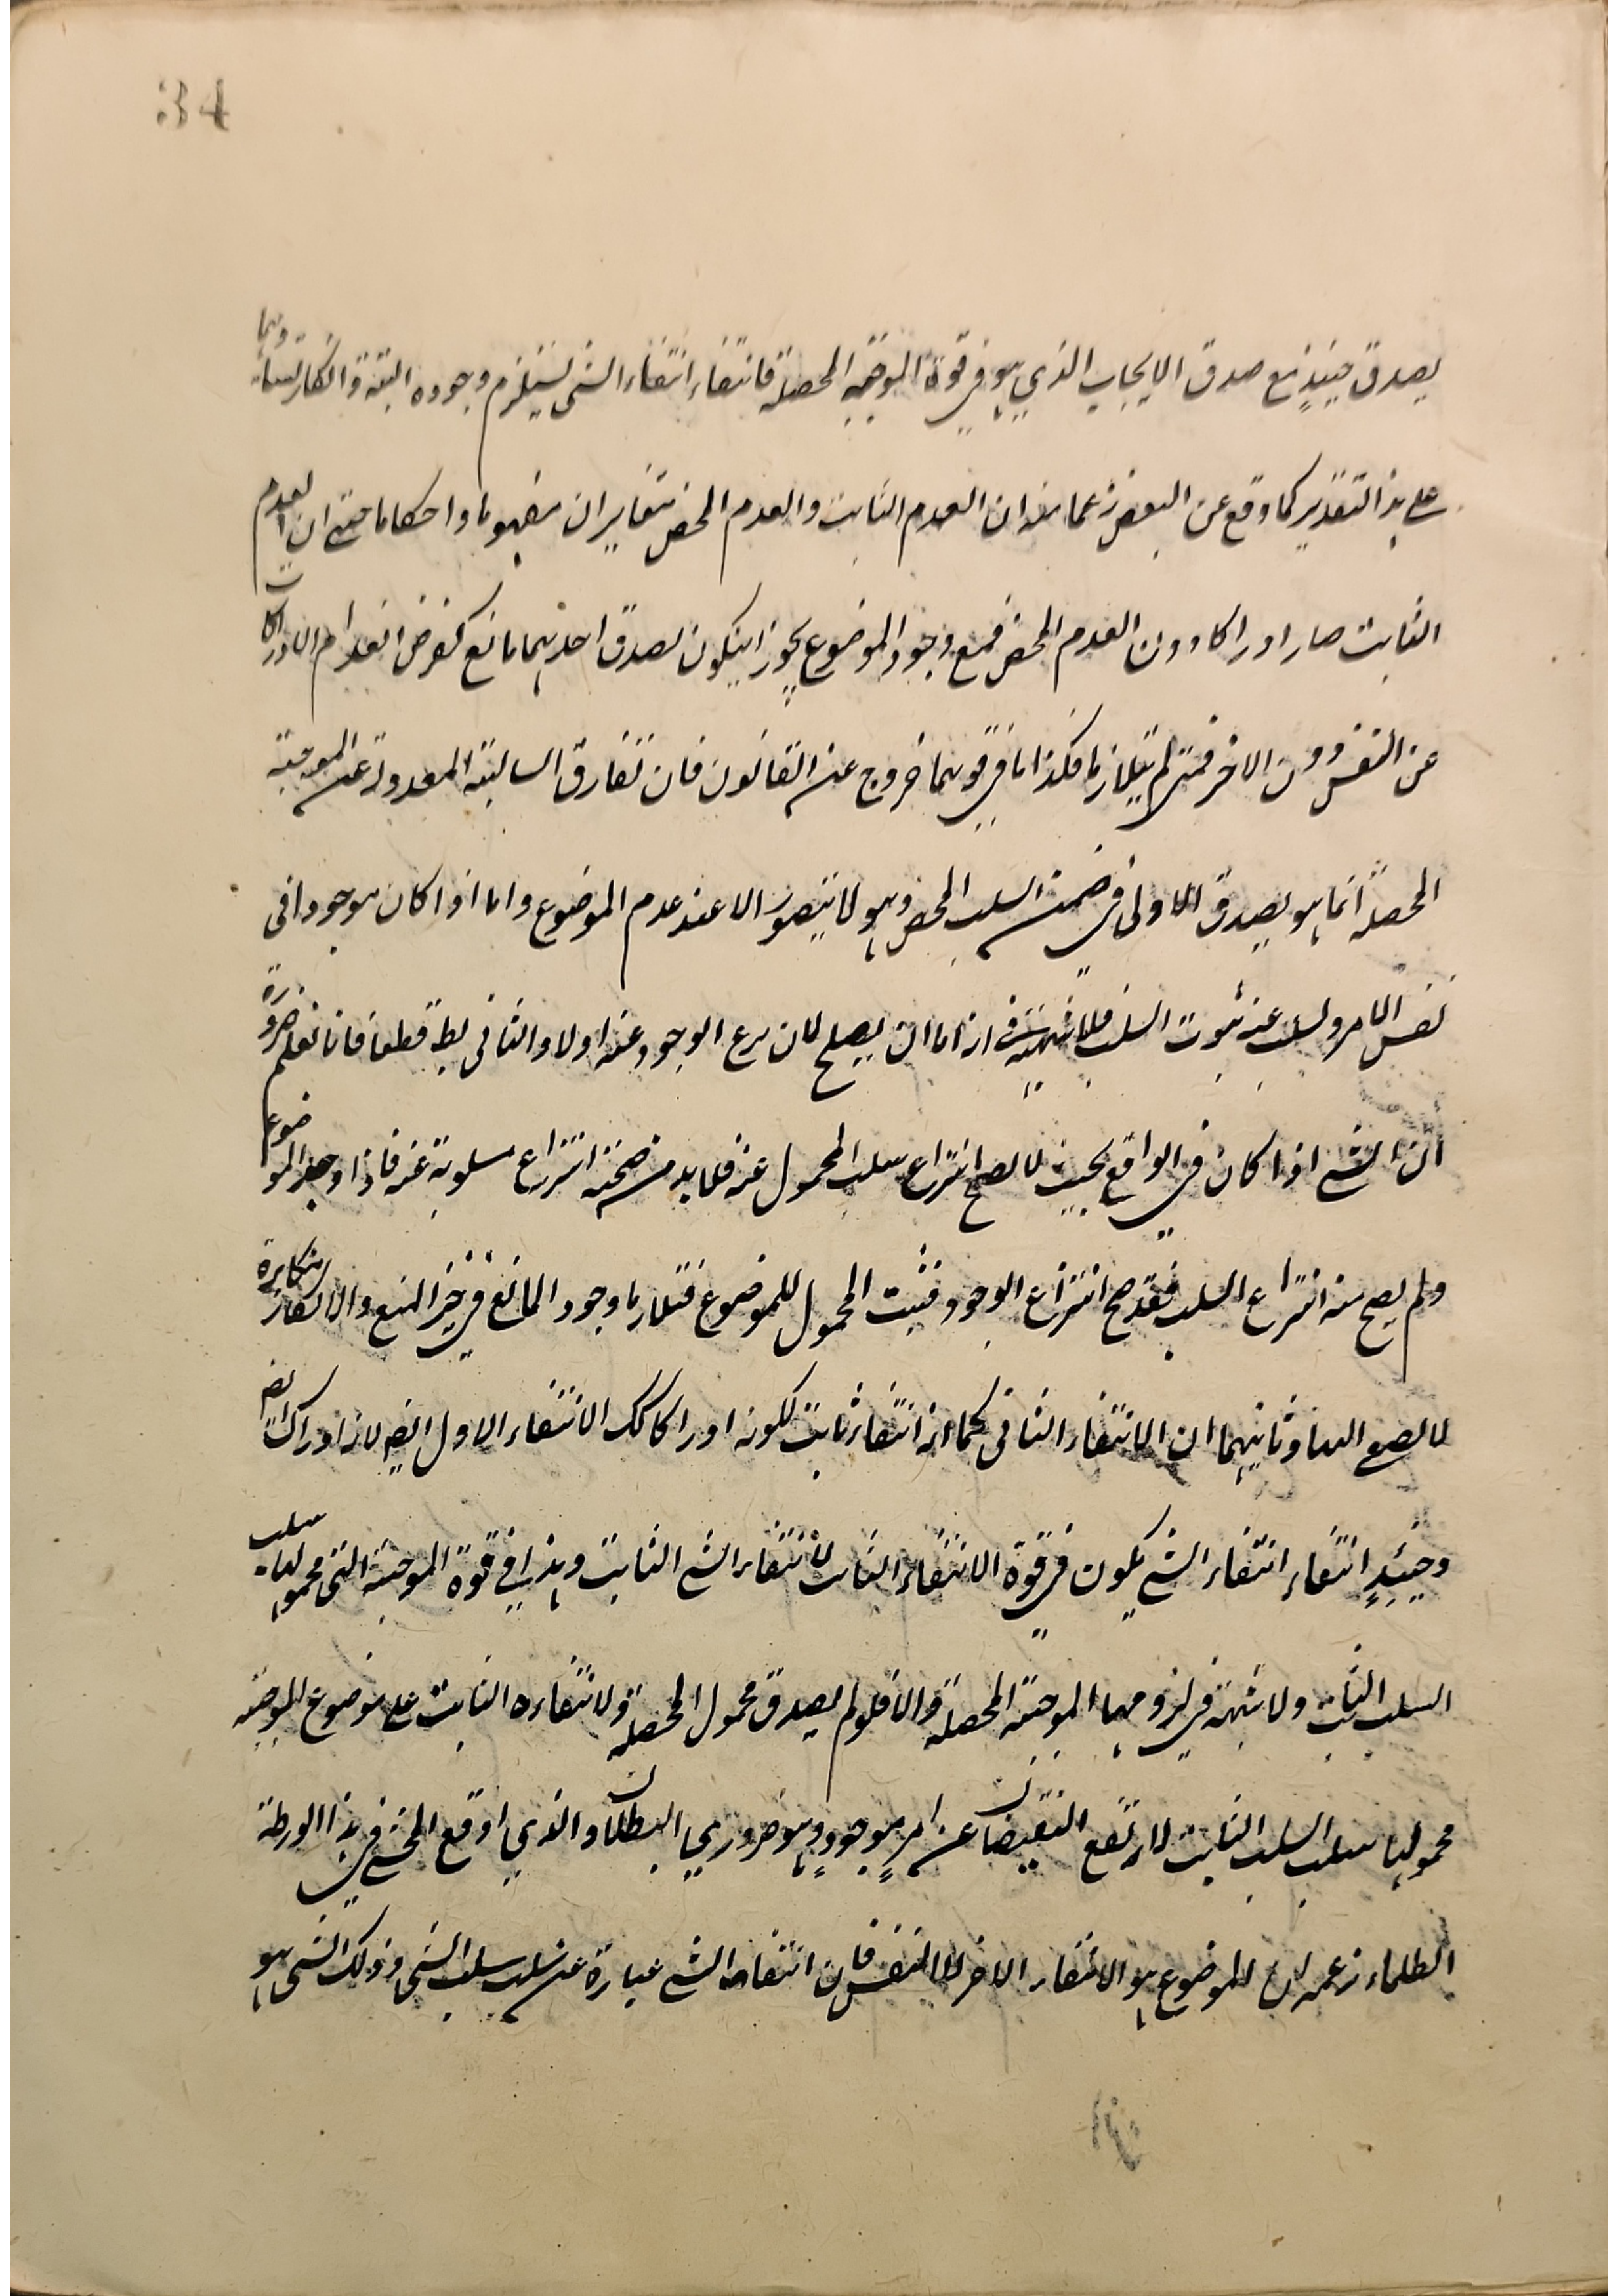 34
يصدق حينئذ مع صدق الايجاب الذي هو في قوة الموجبة المحصلة فانتفاء انتفاء الشئ يستلزم وجوده البتة وانكار تساويهما
على هذا التقدير كما وقع عن البعض زعما منه ان العدم الثابت والعدم المحض متغايران مفهوما واحكاما حتى ان العدم
الثابت صار ادراكا دون العدم المحض فمع وجود الموضوع يجوز ان يكون لصدق احديهما مانع كفرض انعدام الادراكات
عن النفس دون الاخر فمتى لم يتلازما فكذا ما في قوتهما خروج عن القانون فان تفارق السالبة المعدولة عن الموجبة
المحصلة انما هو بصدق الاولى في ضمن السلب المحض وهو لا يتصور الا عند عدم الموضوع واما اذا كان موجودا في
نفس الامر وسلب عنه ثبوت السلب فلا شبهة في انه اما ان يصلح لان ينتزع الوجود عنه او لا والثاني بط قطعا فانا نعلم ضرورة
ان الشئ اذا كان في الواقع بحيث لا يصح انتزاع سلب المحمول عنه فلا بد من صحة انتزاع مسلوبه عنه فاذا وجد الموضوع
ولم يصح منه انتزاع السلب فقد صح انتزاع الوجود فثبت المحمول للموضوع فتلازما وجود المانع في حيز المنع والانكار مكابرة
لا يصغى اليها وثانيهما ان الانتفاء الثاني كما انه انتفاء ثابت لكونه ادراكا كك الانتفاء الاول ايضا لانه ادراك ايضا
وحينئذ انتفاء انتفاء الشئ يكون في قوة الانتفاء الثابت لانتفاء الشئ الثابت وهذا في قوة الموجبة التي محمولها سلب
السلب الثابت ولا شبهة في لزومهما الموجبة المحصلة والا فلو لم يصدق محمول المحصلة ولا انتفاءه الثابت على موضوع الموجبة
محمولها سلب السلب الثابت لارتفع النقيضان عن امر موجود وهو ضروري البطلان والذي اوقع المحشي في هذا الورطة
الظلماء زعمه ان الموضوع هو الانتفاء الاخر لا النفس فان انتفاء الشئ عبارة عن سلب سلب الشئ وذلك الشئ هو